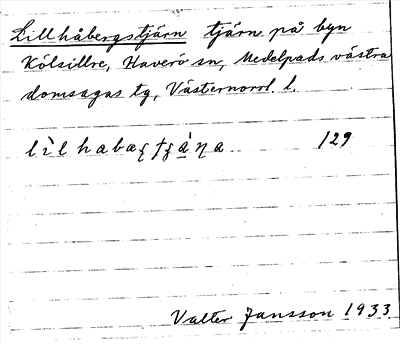 Lillhåbergstjärn tjärn på byn
Kölsillre, Haverö sn, Medelpads västra
domsagas tg, Västernorrl. l.
129
Valter Jansson 1933.